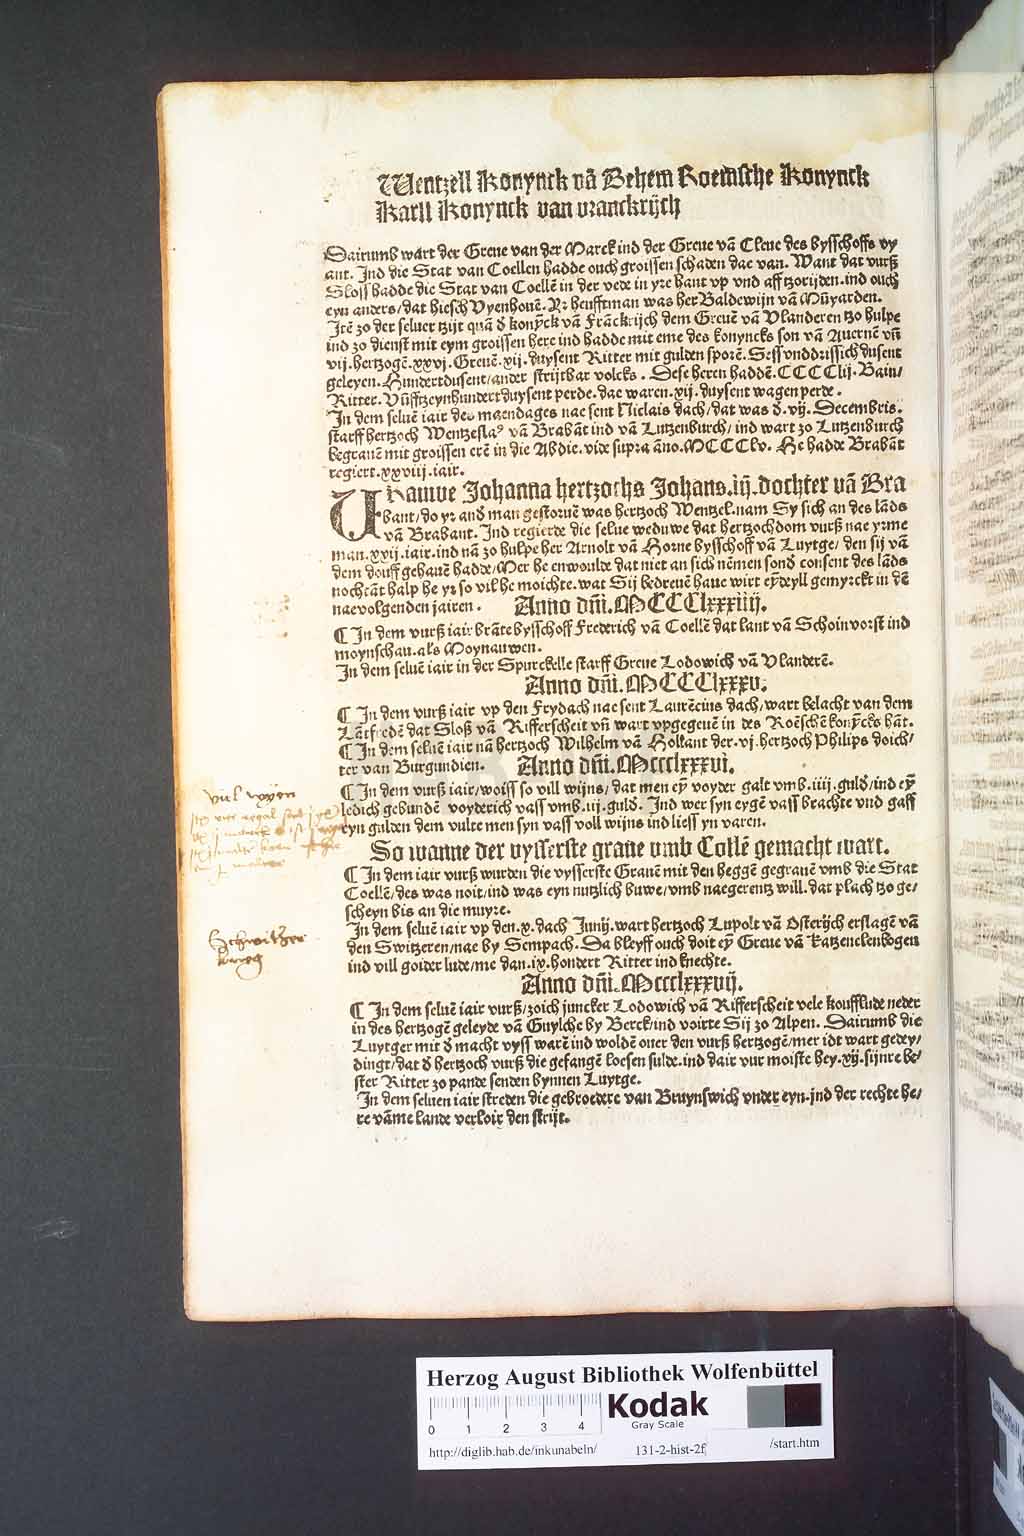 Wentzell Konynck vā Behem Roemsche Konynck
Karll Konynck van vranckrijch
Dairumb wart der Greue van der Marck ind der Greue vā Cleue des bysschoffs vy
ant. Ind die Stat van Coellen hadde ouch groissen schaden dae van. Want dat vurß
Sloss hadde die Stat van Coellē in der vede in yre hant vp vnd aff tzorijden. ind ouch
eyn anders/dat hiesch Vyenhouē. Yr heufftman was her Baldewijn vā
Itē zo der seluer tzijt quā d konyck vā Frāckrijch dem Greuē vā Vlanderen tzo hulpe
ind zo dienst mit eym groissen here ind hadde mit eme des konyncks son vā Auernē vn̄
vij. hertzogē. xxvi. Greuē. xij. duysent Ritter mit gulden sporē. Sess vnddrissich dusent
geleyen. Hundertdusent/ander strijtbar volcks. Dese heren haddē. CCCClij. Bain/
Ritter. Vūfftzeynhundertduysent perde. dae waren. xij. duysent wagenperde.
In dem seluē iair des maendages nae sent Niclais dach/dat was d. vij. Decembris.
starff hertzoch Wentzeslaꝰ vā Brabāt ind vā Lutzenburch/ind wart zo Lutzenburch
begrauē mit groissen erē in die Abdie. vide supra āno. MCCCClv. He hadde Brabāt
regiert. xxviij. iair.
Urauwe Johanna hertzochs Johans. iij. dochter vā Bra
bant/do yr and man gestoruē was hertzoch Wentzel. nam Sy sich an des lāds
vā Brabant. Ind regierde die selue weduwe dat hertzochdom vurß nae yrme
man. xxij. iair. ind nā zo hulpe her Arnolt vā Horne bysschoff vā Luytge/den sij vā
dem douff gehauē hadde/Mer he enwoulde dat niet an sich nēmen sond consent des lāds
nochtāt halp he yr so vil he moichte. wat Sij bedreuē haue wirt eȳdeyll gemyrckt in dē
naevolgenden jairen. Anno dn̄i. MCCCClxxxiiij.
¶ In dem vurß iair brāte bysschoff Frederich vā Coellē dat lant vā Schoinvorst ind
moynschau. als Moynauwen.
In dem seluē iair in der Spurckelle starff Greue Lodowich vā Vlanderē.
Anno dn̄i. MCCCClxxxv.
¶ In dem vurß iair vp den Frydach nae sent Laurēcius dach/wart belacht van dem
Lātfredē dat Sloß vā Rifferscheit vn̄ wart vpgegeuē in des Roēschē konyēcks hāt.
¶ In dem seluē iair nā hertzoch Wilhelm vā Hollant der. vj. hertzoch Philips doich/
ter van Burgundien. Anno dn̄i. Mccclxxxvi.
¶ In dem vurß iair/woiss so vill wijns/dat men eȳ voyder galt vmb. iiij. guld/ind eȳ
ledich gebundē voyderich vass vmb. iij. guld. Ind wer syn eygē vass brachte vnd gaff
eyn gulden dem vulte men syn vass voll wijns ind liess yn varen.
So wanne der vysserste graue vmb Collē gemacht wart.
¶ In dem iair vurß wurden die vysserste Grauē mit den heggē gegrauē vmb die Stat
Coellē/des was noit/ind was eyn nutzlich buwe/vmb naegerentz will. dat plach tzo ge/
scheyn bis an die muyre.
In dem seluē iair vp den. x. dach Junij. wart hertzoch Lupolt vā Osterijch erslagē vā
den Switzeren/nae by Sempach. Da bleyff ouch doit eȳ Greue vā Katzenelenbogen
ind vill goider lude/me dan. ix. hondert Ritter ind knechte.
Anno dn̄i. Mccclxxxvij.
¶ In dem seluē iair vurß/zoich juncker Lodowich vā Rifferscheit vele koufflude neder
in des hertzogē geleyde vā Guylche by Berck/ind voirte Sij zo Alpen. Dairumb die
Luytger mit d macht vyss warē ind woldē ouer den vurß hertzogē/mer idt wart gedey/
dingt/dat d hertzoch vurß die gefangē loesen sulde. ind dair vur moiste hey. xij. sijnre be/
ster Ritter zo pande senden bynnen Luytge.
In dem seluen iair streden die gebroedere van Bruynswich vnder eyn. jnd der rechte he/
re vāme lande verloir den strijt.
vill wyen
Schweitzer
krieg
Herzog August Bibliothek Wolfenbüttel
0 1 2 3 4
Kodak
Gray Scale
http://diglib.hab.de/inkunabeln/ 131-2-hist-2f /start.htm